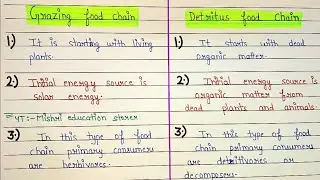 Grazing food chain
1:) It is starting with living
plants.
2:) Initial energy source is
solar energy.
YT:- Mishri education storer
3:) In this type of food
chain primary consumers
are herbivores.
Detritus food chain
1:) It starts with dead
organic matter.
2:) Initial energy source is
organic matter from
dead plants and animals.
3:) In this type of food
chain primary consumers
are detritivores or
decomposers.